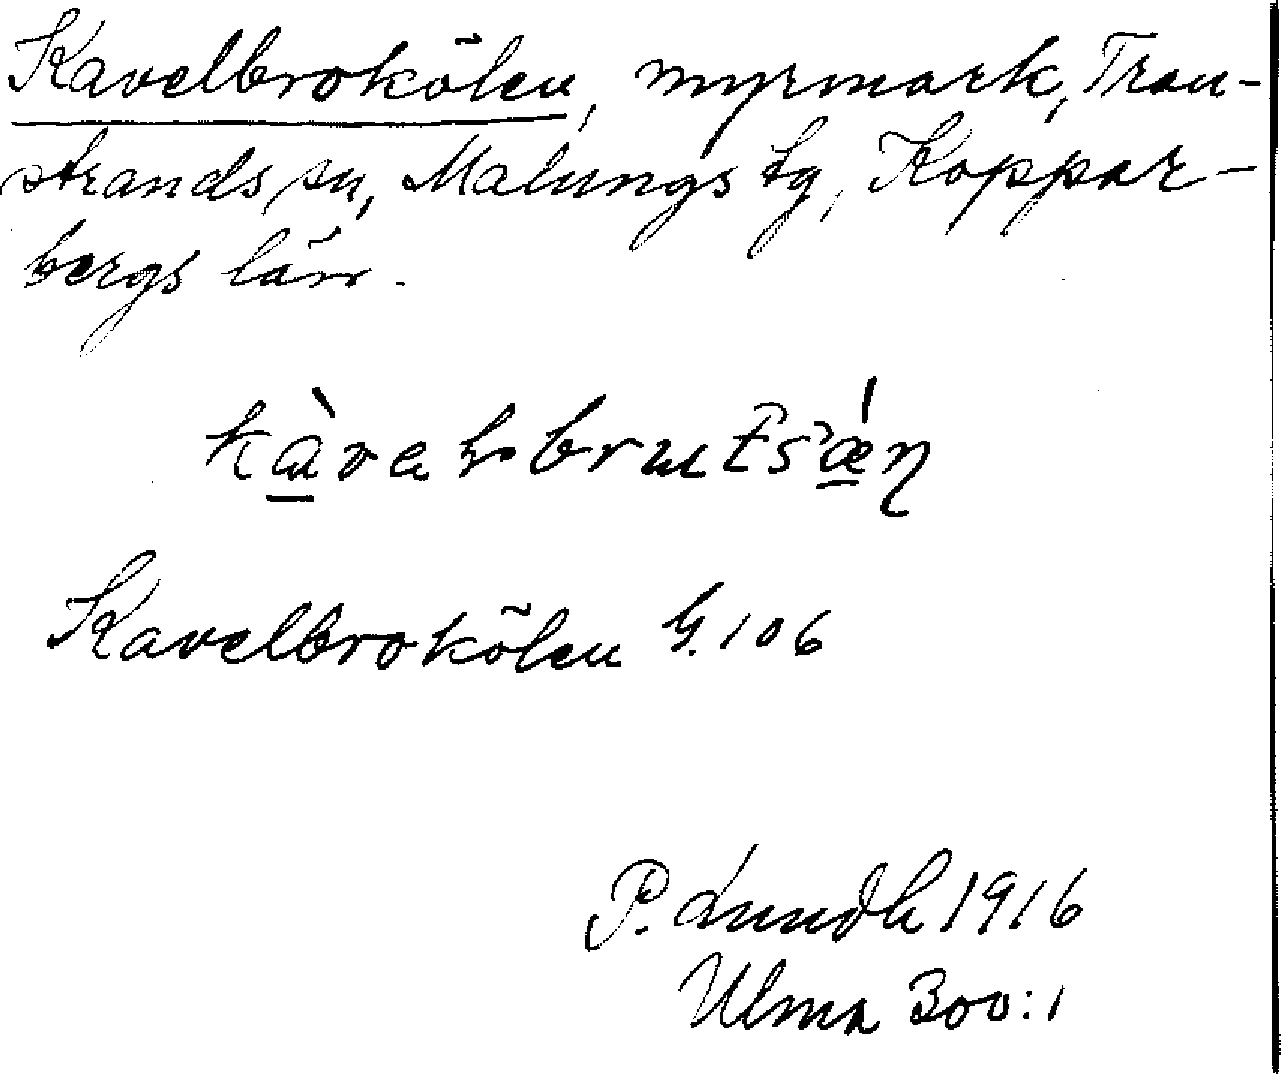 Kavelbrokölen, myrmark, Tran-
strands sn, Malungs tg, Koppar-
bergs län.
Kavelbrokölen G. 106
P. Lundh 1916
Ulma 300:1